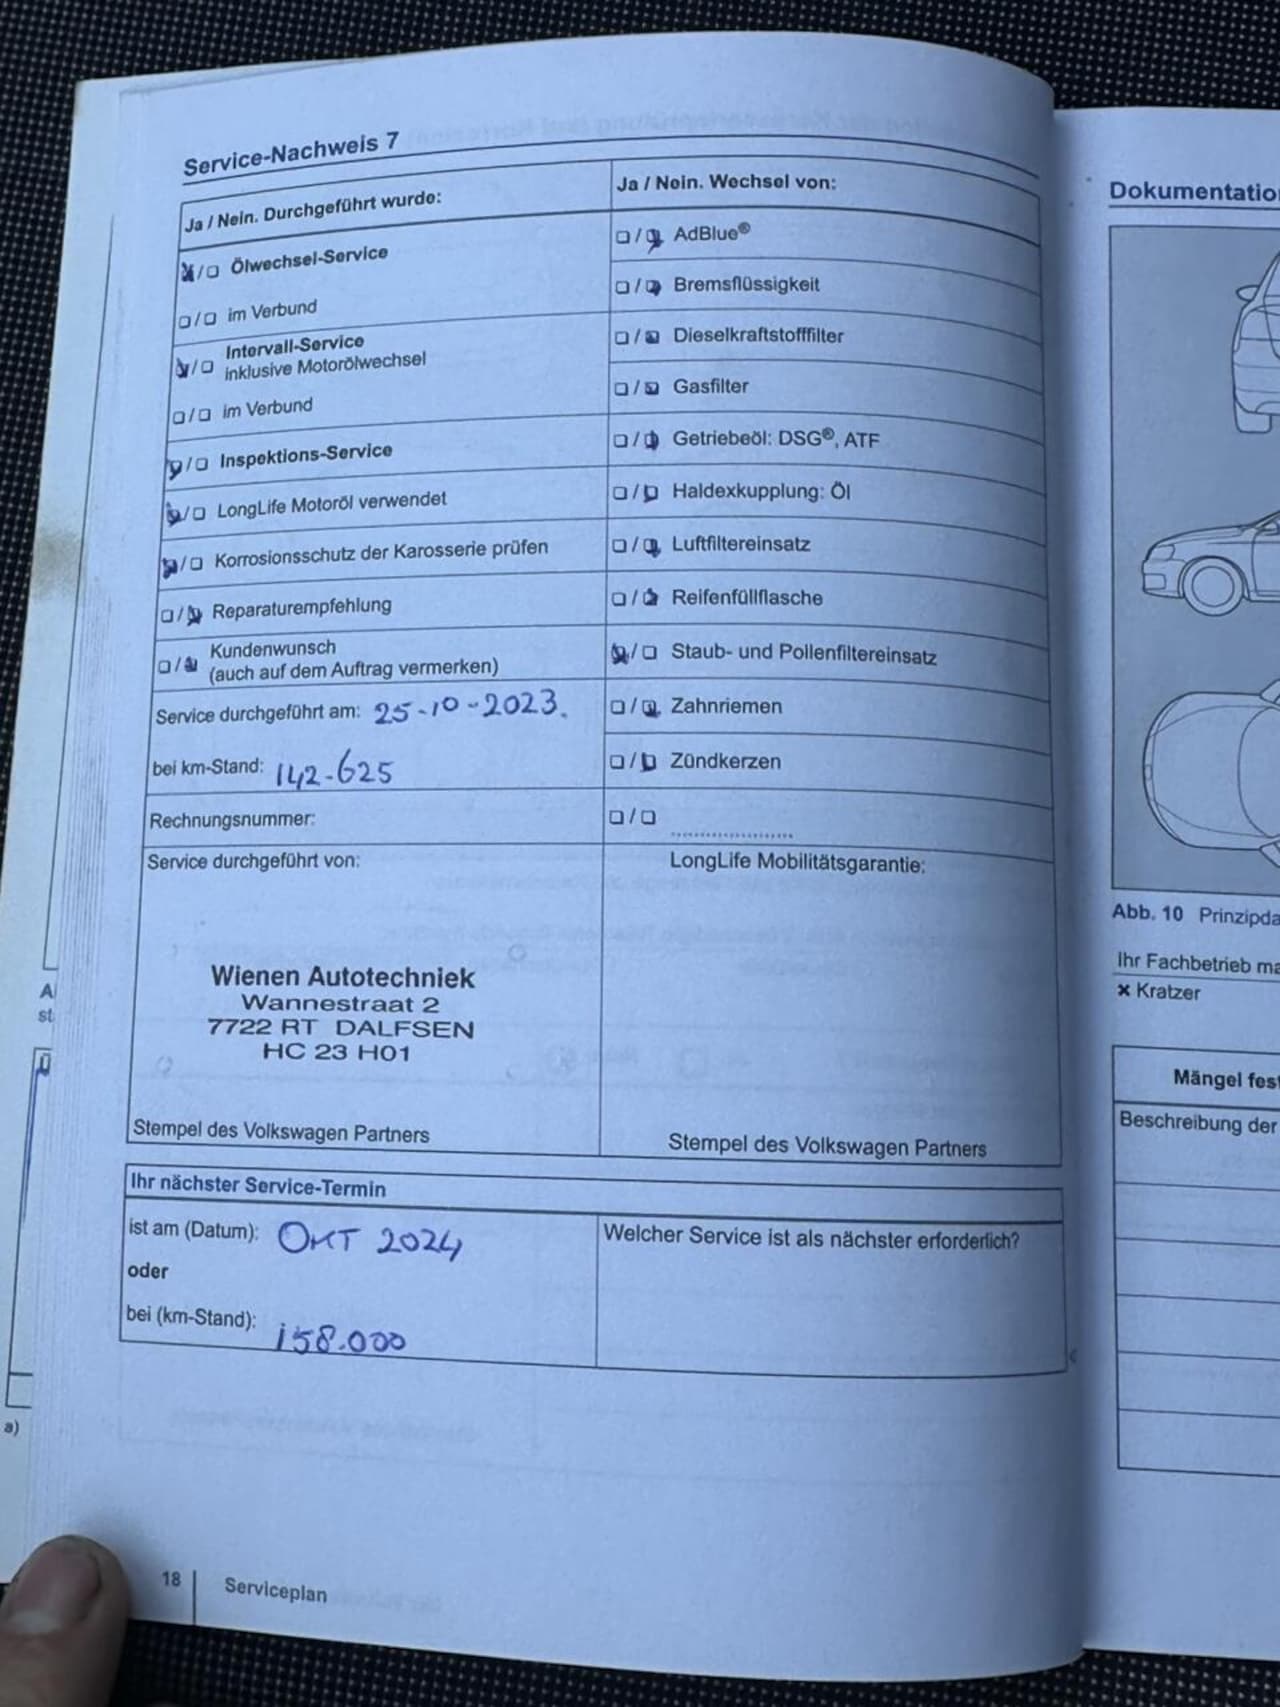 Service-Nachweis 7
Ja / Nein. Durchgeführt wurde:
☒/☐ Ölwechsel-Service
☐/☐ im Verbund
☒/☐ Intervall-Service
inklusive Motorölwechsel
☐/☐ im Verbund
☒/☐ Inspektions-Service
☒/☐ LongLife Motoröl verwendet
☒/☐ Korrosionsschutz der Karosserie prüfen
☐/☒ Reparaturempfehlung
☐/☒ Kundenwunsch
(auch auf dem Auftrag vermerken)
Service durchgeführt am: 25-10-2023.
bei km-Stand: 142.625
Rechnungsnummer:
Service durchgeführt von:
Wienen Autotechniek
Wannestraat 2
7722 RT DALFSEN
HC 23 H01
Stempel des Volkswagen Partners
Ja / Nein. Wechsel von:
☐/☒ AdBlue®
☐/☒ Bremsflüssigkeit
☐/☒ Dieselkraftstofffilter
☐/☒ Gasfilter
☐/☒ Getriebeöl: DSG®, ATF
☐/☒ Haldexkupplung: Öl
☐/☒ Luftfiltereinsatz
☐/☒ Reifenfüllflasche
☒/☐ Staub- und Pollenfiltereinsatz
☐/☒ Zahnriemen
☐/☒ Zündkerzen
☐/☐ ......................
LongLife Mobilitätsgarantie:
Stempel des Volkswagen Partners
Ihr nächster Service-Termin
ist am (Datum): OKT 2024
oder
bei (km-Stand): 158.000
Welcher Service ist als nächster erforderlich?
18
Serviceplan
a)
Abb. 10 Prinzipda
Ihr Fachbetrieb ma
× Kratzer
Mängel fest
Beschreibung der
Dokumentatio